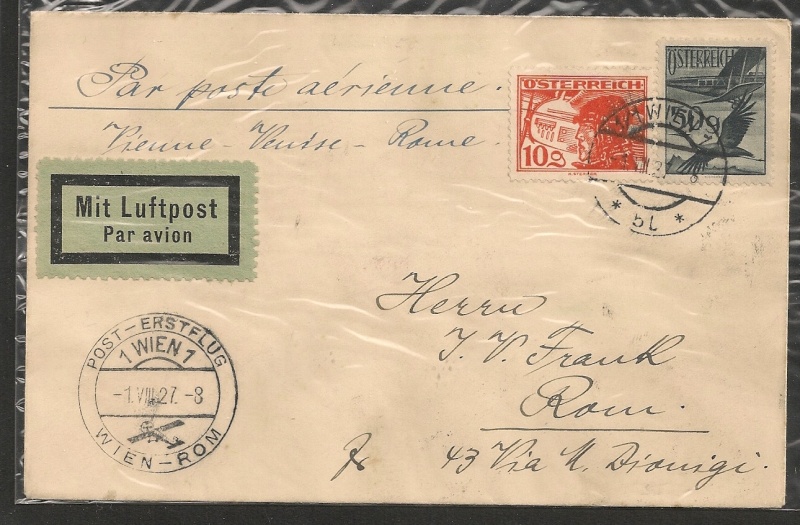 Par poste aérienne.
Vienne - Venise - Rome.
ÖSTERREICH
10g
ÖSTERREICH
1 WIEN 1
* 5c *
Mit Luftpost
Par avion
POST-ERSTFLUG
1 WIEN 1
-1.VIII.27.-8
WIEN-ROM
Herrn
J. V. Frank
Rom.
43 Via U. Dionigi.